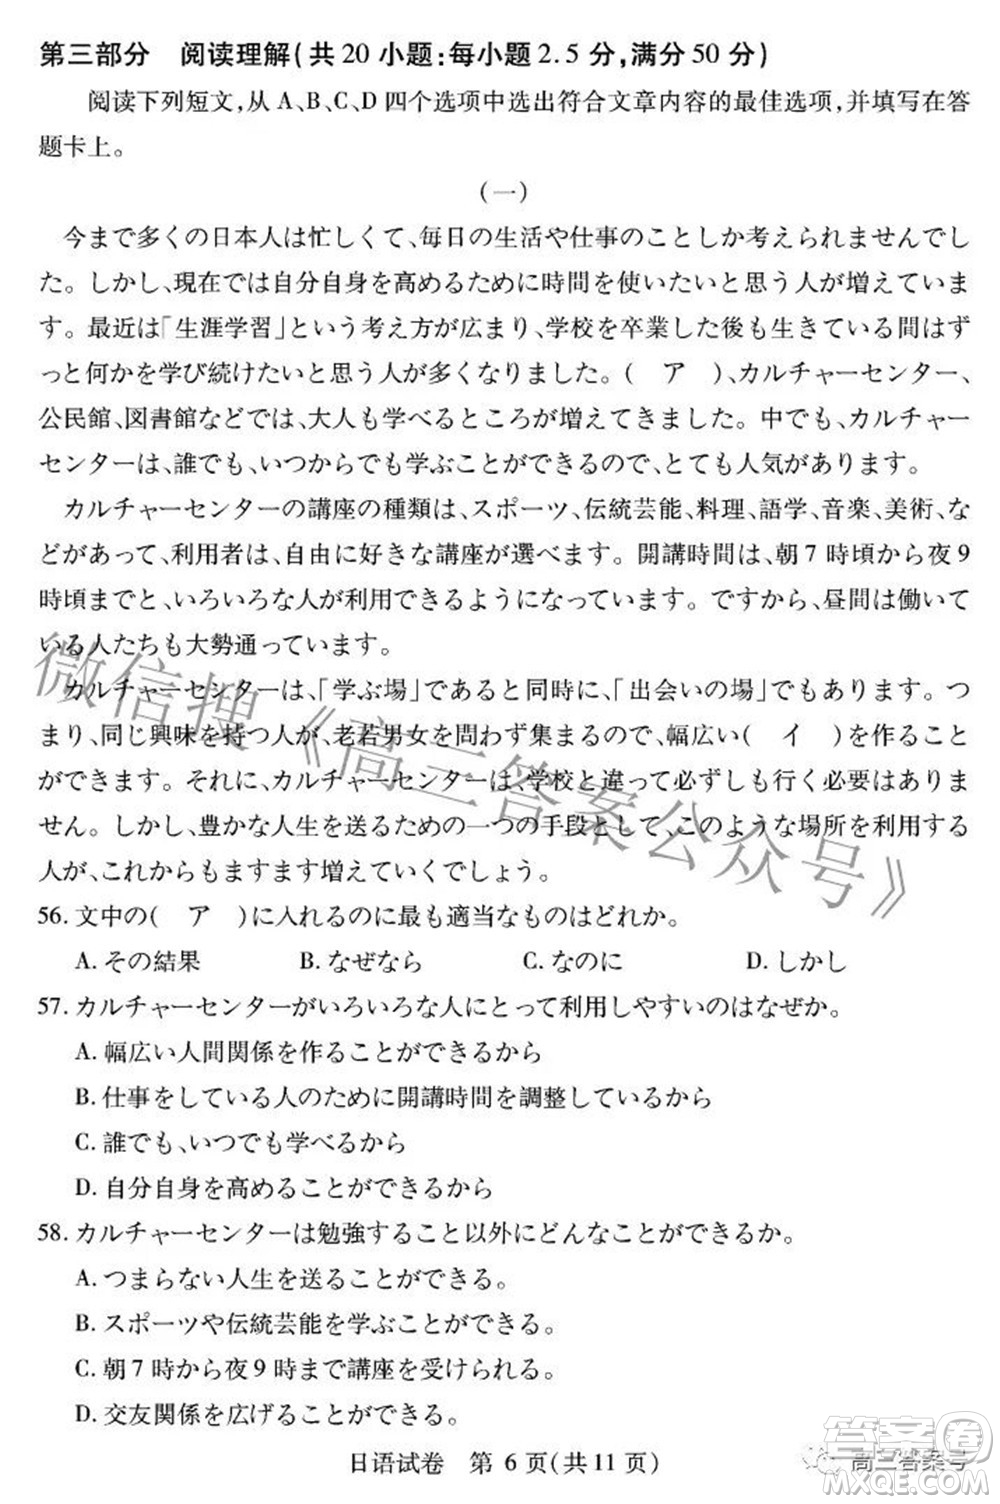 第三部分　阅读理解(共20小题:每小题2.5分,满分50分)
阅读下列短文,从A、B、C、D四个选项中选出符合文章内容的最佳选项,并填写在答
题卡上。
(一)
今まで多くの日本人は忙しくて、毎日の生活や仕事のことしか考えられませんでし
た。しかし、現在では自分自身を高めるために時間を使いたいと思う人が増えていま
す。最近は「生涯学習」という考え方が広まり、学校を卒業した後も生きている間はず
っと何かを学び続けたいと思う人が多くなりました。(　ア　)、カルチャーセンター、
公民館、図書館などでは、大人も学べるところが増えてきました。中でも、カルチャー
センターは、誰でも、いつからでも学ぶことができるので、とても人気があります。
カルチャーセンターの講座の種類は、スポーツ、伝統芸能、料理、語学、音楽、美術、な
どがあって、利用者は、自由に好きな講座が選べます。開講時間は、朝7時頃から夜9
時頃までと、いろいろな人が利用できるようになっています。ですから、昼間は働いて
いる人たちも大勢通っています。
カルチャーセンターは、「学ぶ場」であると同時に、「出会いの場」でもあります。つ
まり、同じ興味を持つ人が、老若男女を問わず集まるので、幅広い(　イ　)を作ること
ができます。さらに、カルチャーセンターは、学校と違って必ずしも行く必要はありま
せん。しかし、豊かな人生を送るための一つの手段として、このような場所を利用する
人が、これからもますます増えていくでしょう。
56. 文中の(　ア　)に入れるのに最も適当なものはどれか。
A. その結果　B. なぜなら　C. なのに　D. しかし
57. カルチャーセンターがいろいろな人にとって利用しやすいのはなぜか。
A. 幅広い人間関係を作ることができるから
B. 仕事をしている人のために開講時間を調整しているから
C. 誰でも、いつでも学べるから
D. 自分自身を高めることができるから
58. カルチャーセンターは勉強すること以外にどんなことができるか。
A. つまらない人生を送ることができる。
B. スポーツや伝統芸能を学ぶことができる。
C. 朝7時から夜9時まで講座を受けられる。
D. 交友関係を広げることができる。
日语试卷　第6页(共11页)
微信搜《高三答案公众号》
高三答案号
答案圈
MXQE.COM